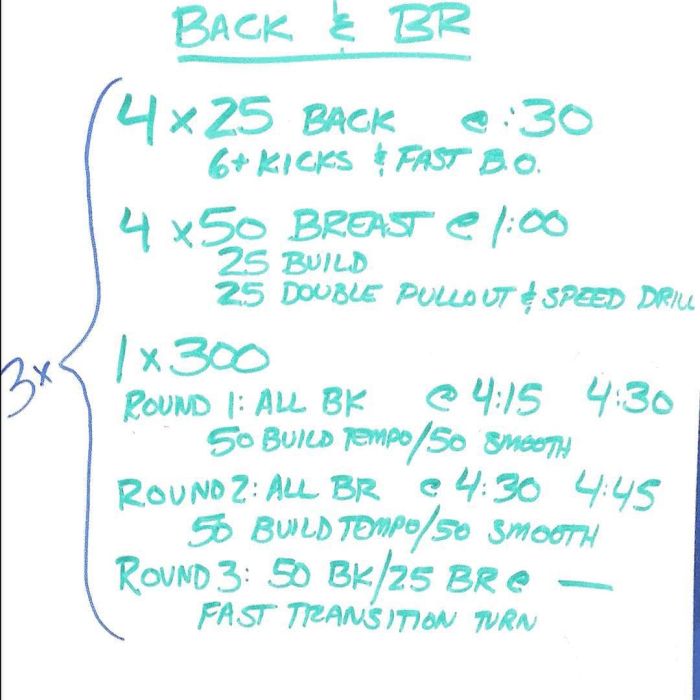 BACK & BR
4 x 25 BACK @ :30
6+ KICKS & FAST B.O.
4 x 50 BREAST @ 1:00
25 BUILD
25 DOUBLE PULLOUT & SPEED DRILL
3x
1 x 300
ROUND 1: ALL BK @ 4:15 4:30
50 BUILD TEMPO/50 SMOOTH
ROUND 2: ALL BR @ 4:30 4:45
50 BUILD TEMPO/50 SMOOTH
ROUND 3: 50 BK/25 BR @ —
FAST TRANSITION TURN